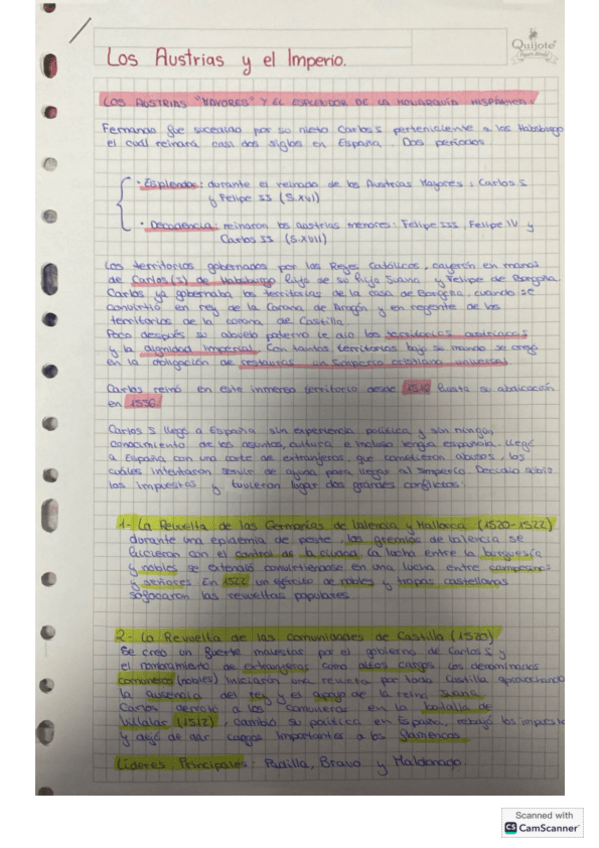 Quijote
Los Austrias y el Imperio.
LOS AUSTRIAS "MAYORES" Y EL ESPLENDOR DE LA MONARQUÍA HISPÁNICA.
Fernando fue sucedido por su nieto Carlos I perteneciente a los Habsburgo
el cuál reinará casi dos siglos en España Dos períodos
· Esplendor: durante el reinado de los Austrias Mayores, Carlos I
y Felipe II (S.XVI)
· Decadencia: reinaron los austrias menores: Felipe III, Felipe IV y
Carlos II (S.XVII)
Los territorios gobernados por los Reyes Católicos, cayeron en manos
de Carlos (I) de Habsburgo hijo de su hija Juana y Felipe de Borgoña
Carlos ya gobernaba los territorios de la casa de Borgoña, cuando se
convirtió en rey de la Corona de Aragón y en regente de los
territorios de la corona de Castilla.
Poco después su abuelo paterno le dio los territorios austriacos
y la dignidad imperial. Con tantos territorios bajo su mando se creyó
en la obligación de restaurar un Imperio cristiano universal
Carlos reinó en este inmenso territorio desde hasta su abdicación
en 1556
Carlos I llegó a España sin experiencia política, y sin ningún
conocimiento de los asuntos, cultura e incluso lengua española. Llegó
a España con una corte de extranjeros, que cometieron abusos, los
cuáles intentaron servir de ayuda para llegar al imperio. Decidió subir
los impuestos y tuvieron lugar dos grandes conflictos:
1- La Revuelta de las Germanías de Valencia y Mallorca (1520-1522)
durante una epidemia de peste, los gremios de Valencia se
hicieron con el control de la ciudad La lucha entre la burguesía
y nobles se extendió convirtiéndose en una lucha entre campesinos
y señores En 1522 un ejército de nobles y tropas castellanas
sofocaron las revueltas populares
2- La Revuelta de las Comunidades de Castilla (1520)
Se creo un fuerte malestar por el gobierno de Carlos I y
el nombramiento de extranjeros como altos cargos Los denominados
comuneros (nobles) iniciaron una revuelta por toda Castilla aprovechando
la ausencia del rey y el apoyo de la reina Juana.
Carlos derrotó a los comuneros en la batalla de
Villalar (1512), cambió su política en España, rebajó los impuestos
y dejó de dar cargos importantes a los flamencos
Líderes Principales: Padilla, Bravo y Maldonado.
Scanned with
CS CamScanner